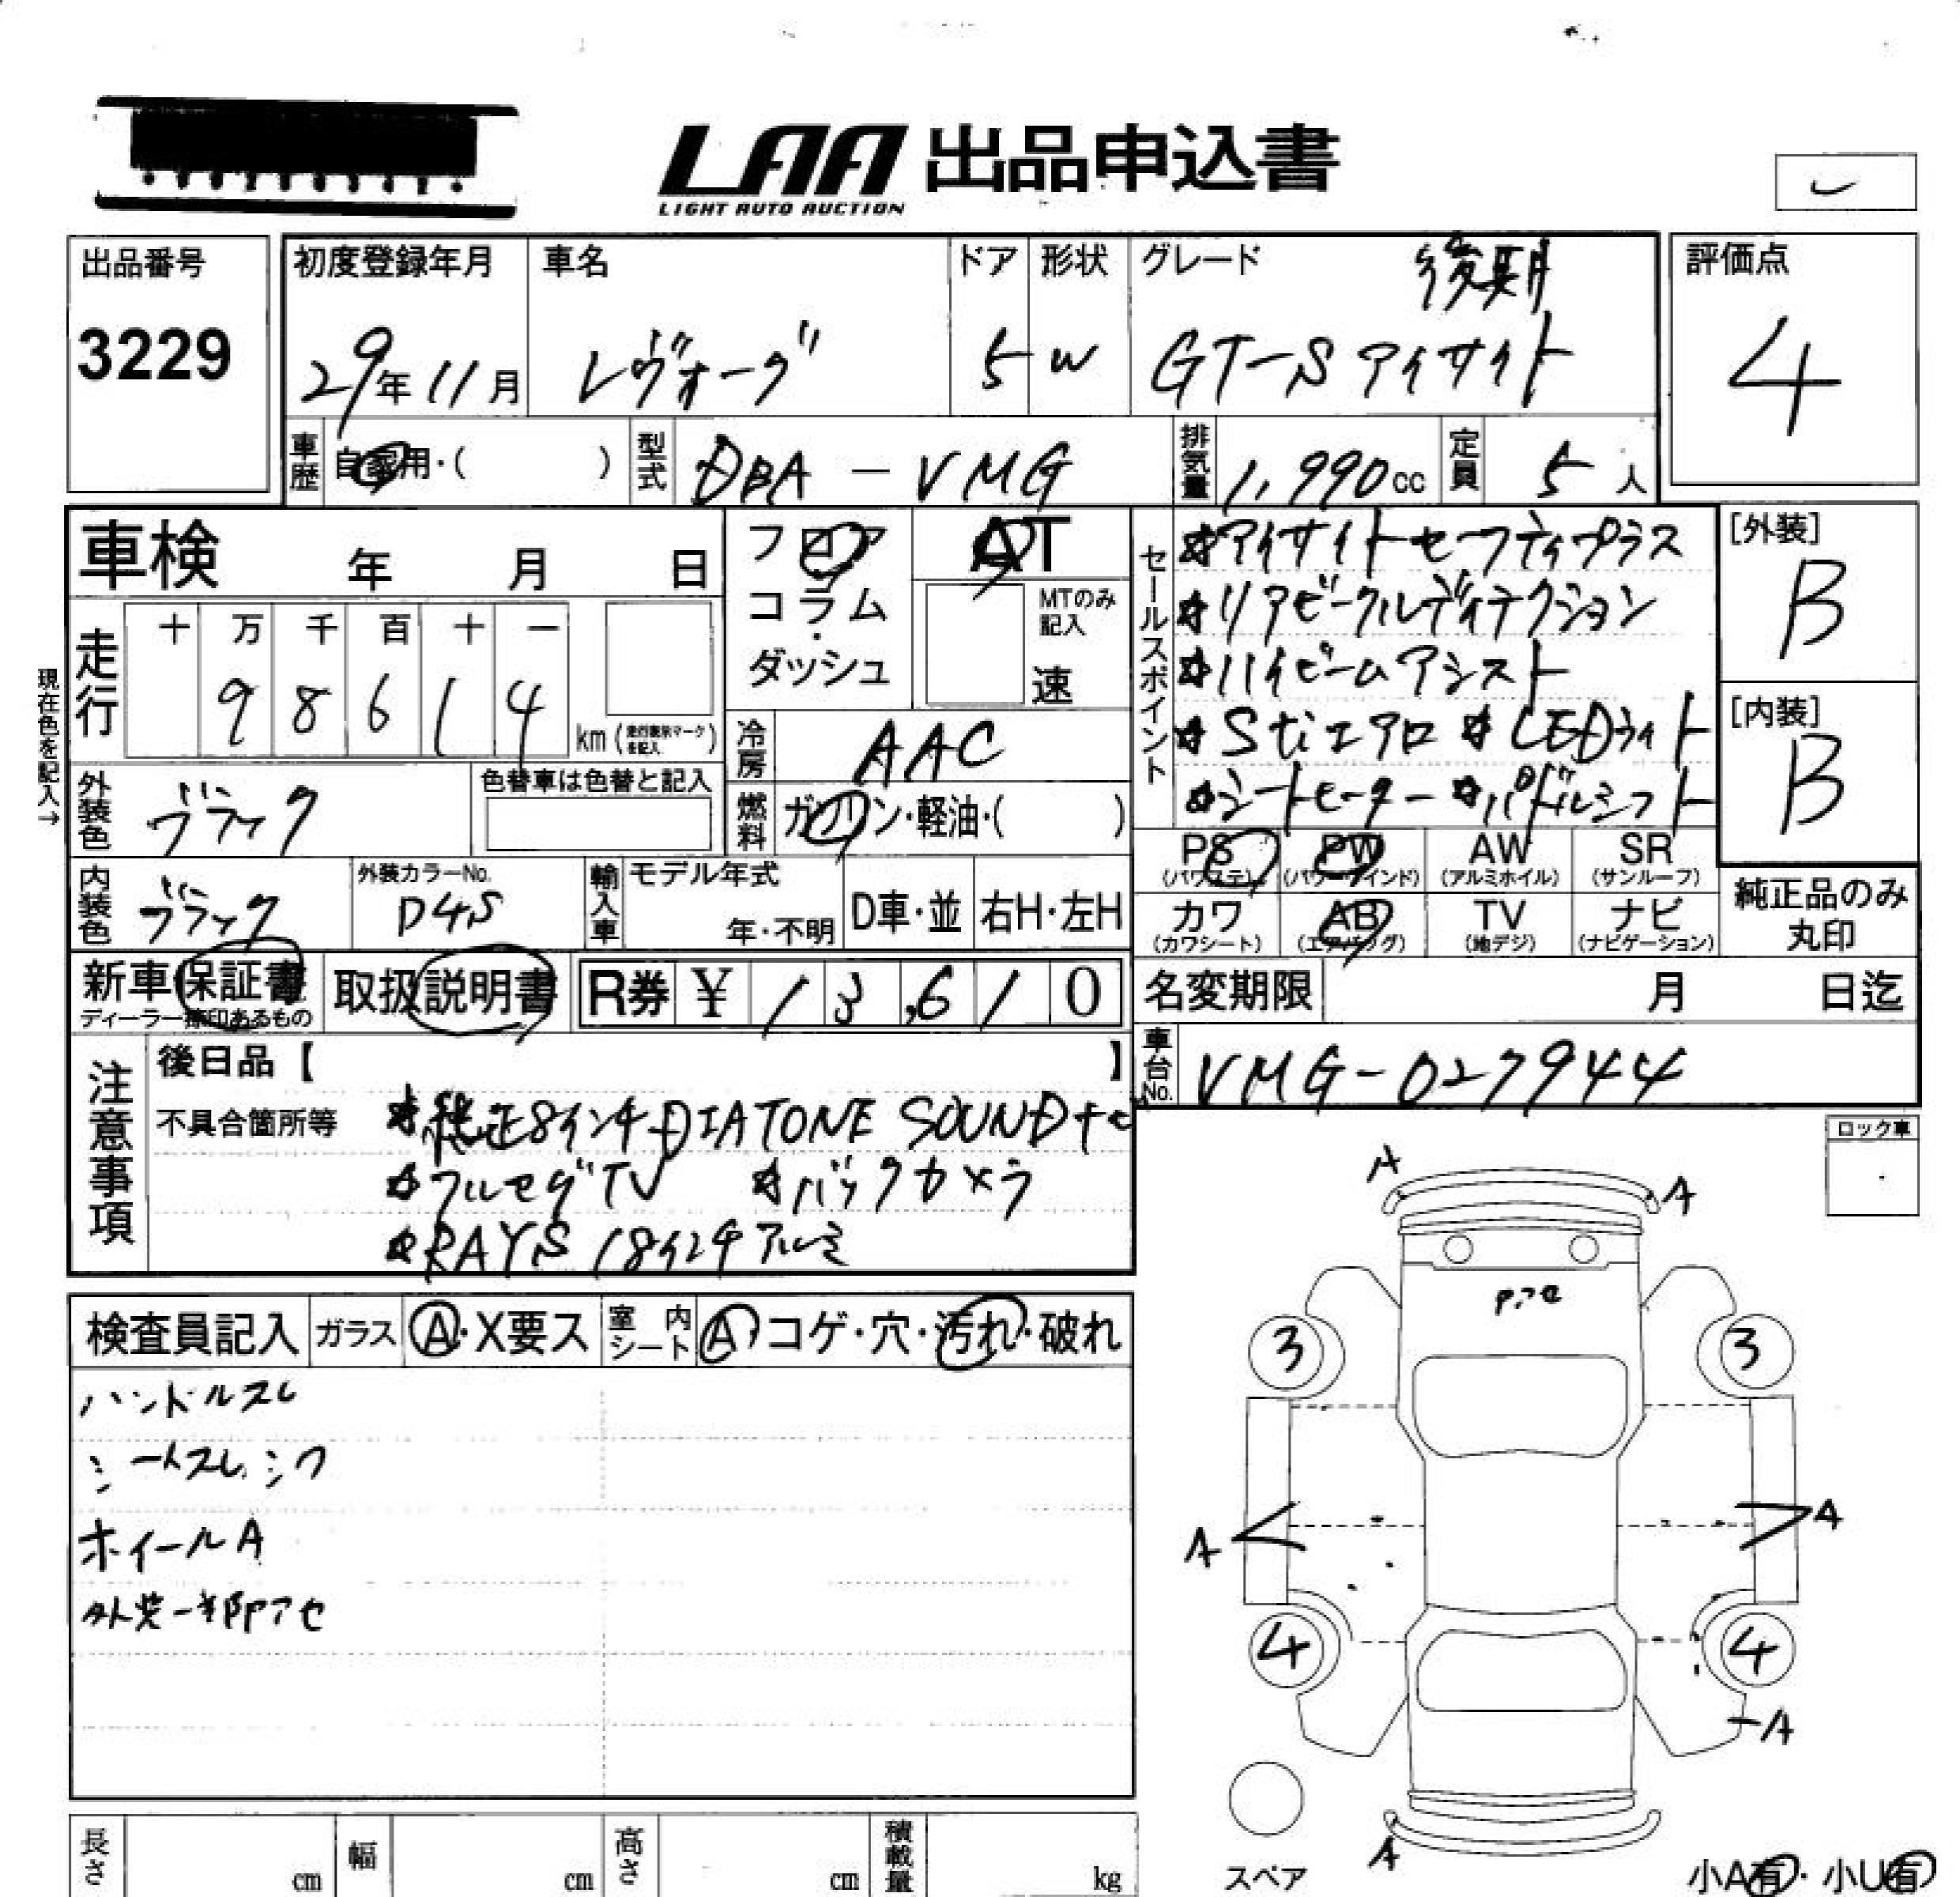 LAA 出品申込書
LIGHT AUTO AUCTION
出品番号
3229
初度登録年月
29年11月
車名
レヴォーグ
ドア
5
形状
W
グレード
後期
GT-S アイサイト
評価点
4
車歴
自家用・( )
型式
DBA-VMG
排気量
1,990cc
定員
5人
車検 年 月 日
フロア
コラム
・
ダッシュ
AT
MTのみ
記入
速
現在色を記入→
走行
十 万 千 百 十 一
9 8 6 1 4
km(走行表示マークを記入)
冷房
AAC
燃料
ガソリン・軽油・( )
外装色
ブラック
色替車は色替と記入
内装色
ブラック
外装カラーNo.
D4S
輸入車
モデル年式
年・不明
D車・並
右H・左H
新車保証書
ディーラー捺印あるもの
取扱説明書
R券 ¥ 13,610
セールスポイント
☆アイサイトセーフティプラス
☆リアビークルディテクション
☆ハイビームアシスト
☆Stiエアロ ☆LEDライト
☆シートヒーター ☆パドルシフト
[外装]
B
[内装]
B
PS
(パワステ)
PW
(パワーウインド)
AW
(アルミホイル)
SR
(サンルーフ)
カワ
(カワシート)
AB
(エアバッグ)
TV
(地デジ)
ナビ
(ナビゲーション)
純正品のみ
丸印
名変期限 月 日迄
車台No.
VMG-027944
注意事項
後日品【 】
不具合箇所等
☆純正8インチDIATONE SOUNDナビ
☆フルセグTV ☆バックカメラ
☆RAYS 18インチアルミ
ロック車
検査員記入
ガラス
A・X要ス
室内シート
A・コゲ・穴・汚れ・破れ
ハンドルスレ
シートスレ、シワ
ホイールA
外装一部アセ
A
A
アセ
3
3
A
A
4
4
A
A
スペア
小A有・小U有
長さ cm
幅 cm
高さ cm
積載量 kg